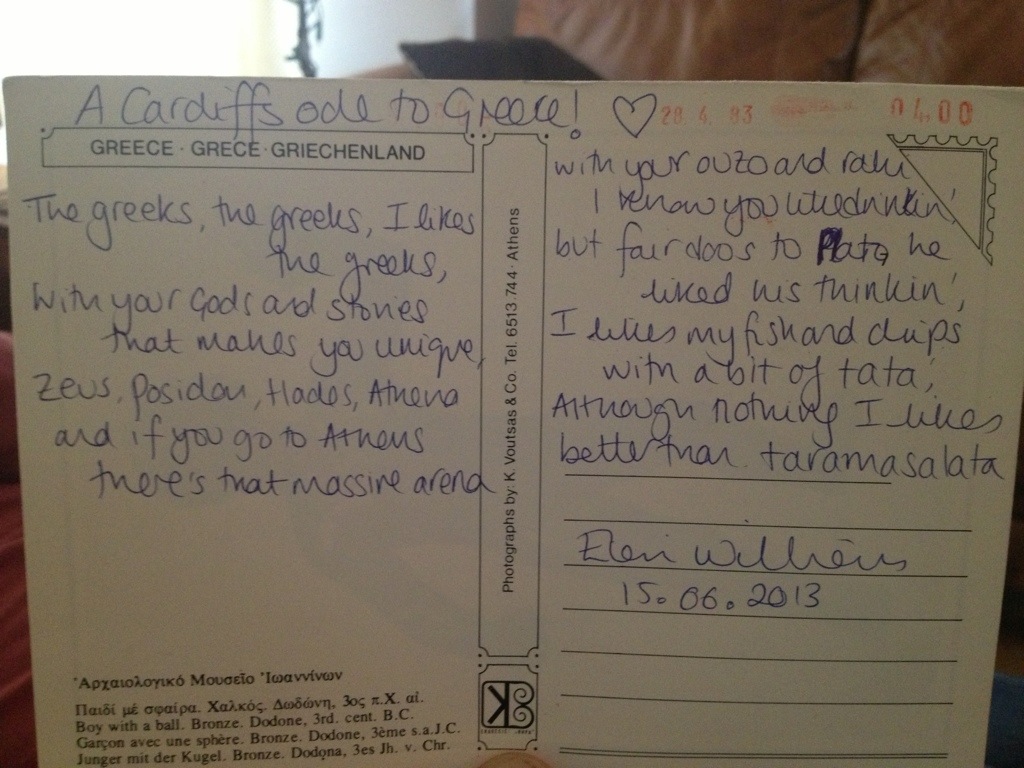 A Cardiffs ode to Greece!
28. 4. 93
04.00
GREECE · GRECE · GRIECHENLAND
The greeks, the greeks, I likes
the greeks,
With your Gods and stories
that makes you unique,
Zeus, Posidon, Hades, Athena
and if you go to Athens
there's that massive arena
Photographs by: K. Voutsas & Co. Tel. 6513.744 · Athens
with your ouzo and raki
I know you like drinkin'
but fair doos to Plato, he
liked his thinkin',
I likes my fish and chips
with a bit of tata',
Although nothing I likes
better than taramasalata
Eleri Williams
15.06.2013
Ἀρχαιολογικό Μουσεῖο Ἰωαννίνων
Παιδί μέ σφαίρα. Χαλκός. Δωδώνη, 3ος π.Χ. αἰ.
Boy with a ball. Bronze. Dodone, 3rd. cent. B.C.
Garçon avec une sphère. Bronze. Dodone, 3ème s.a.J.C.
Junger mit der Kugel. Bronze. Dodona, 3es Jh. v. Chr.